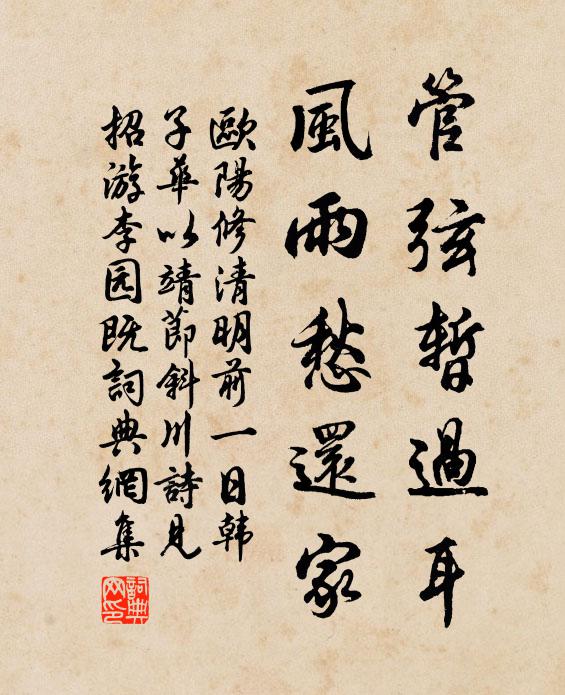 管弦暫過耳
風雨愁還家
歐陽修清明前一日韩
子華以靖節斜川詩見
招游李园既詞典網集
詞典网印